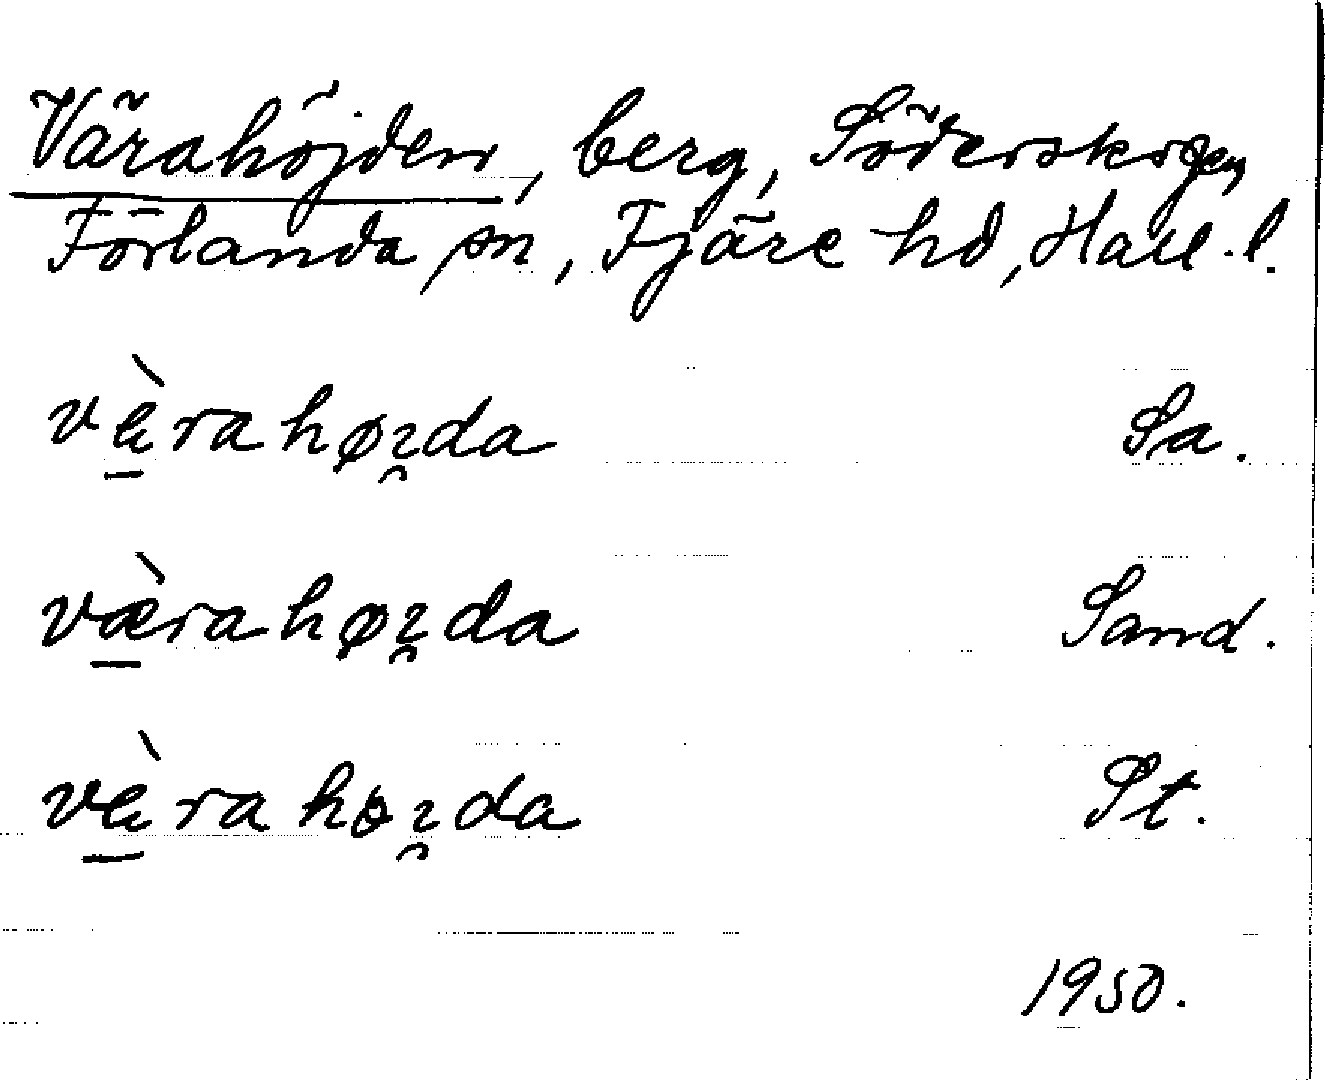 Värahöjden, berg, Söderskogen
Förlanda sn, Fjäre hd, Hall. l.
væ̀rahøı̯da Sa.
væ̀rahøı̯da Sand.
væ̀rahoı̯da St.
1950.